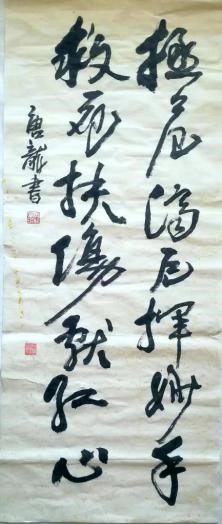 拯危济厄挥妙手
救死扶伤献红心
唐龙书